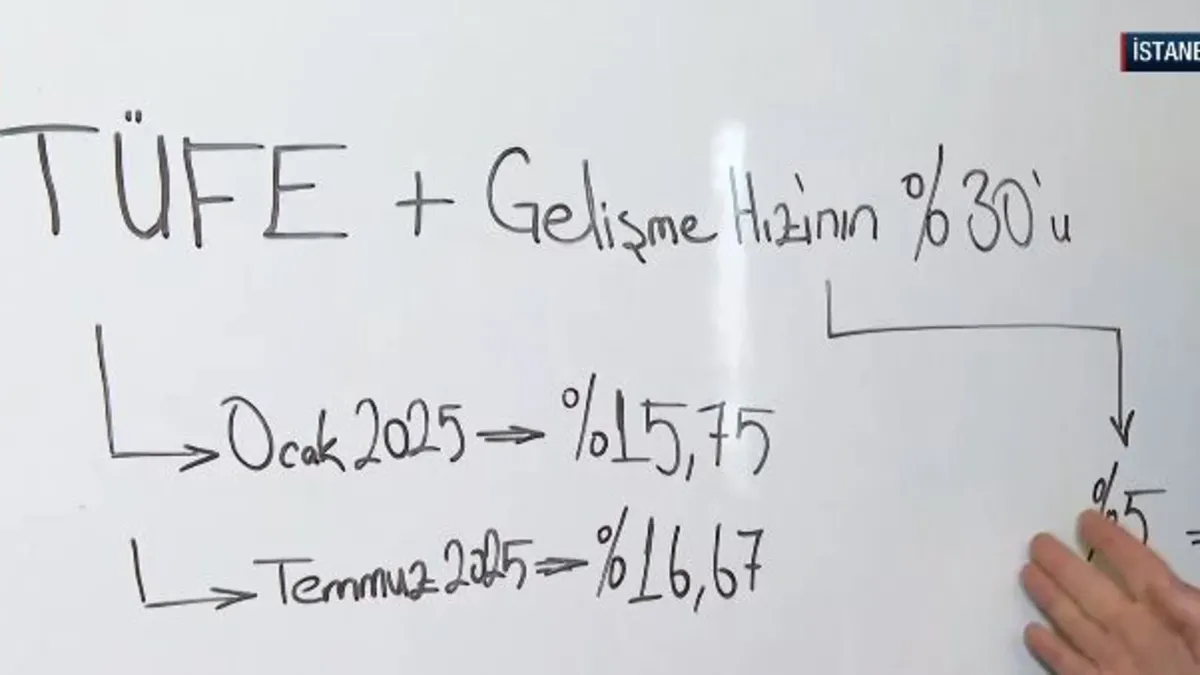 İSTANB
TÜFE + Gelişme Hızı'nın %30'u
Ocak 2025 ⇒ %15,75
%5 =
Temmuz 2025 ⇒ %16,67